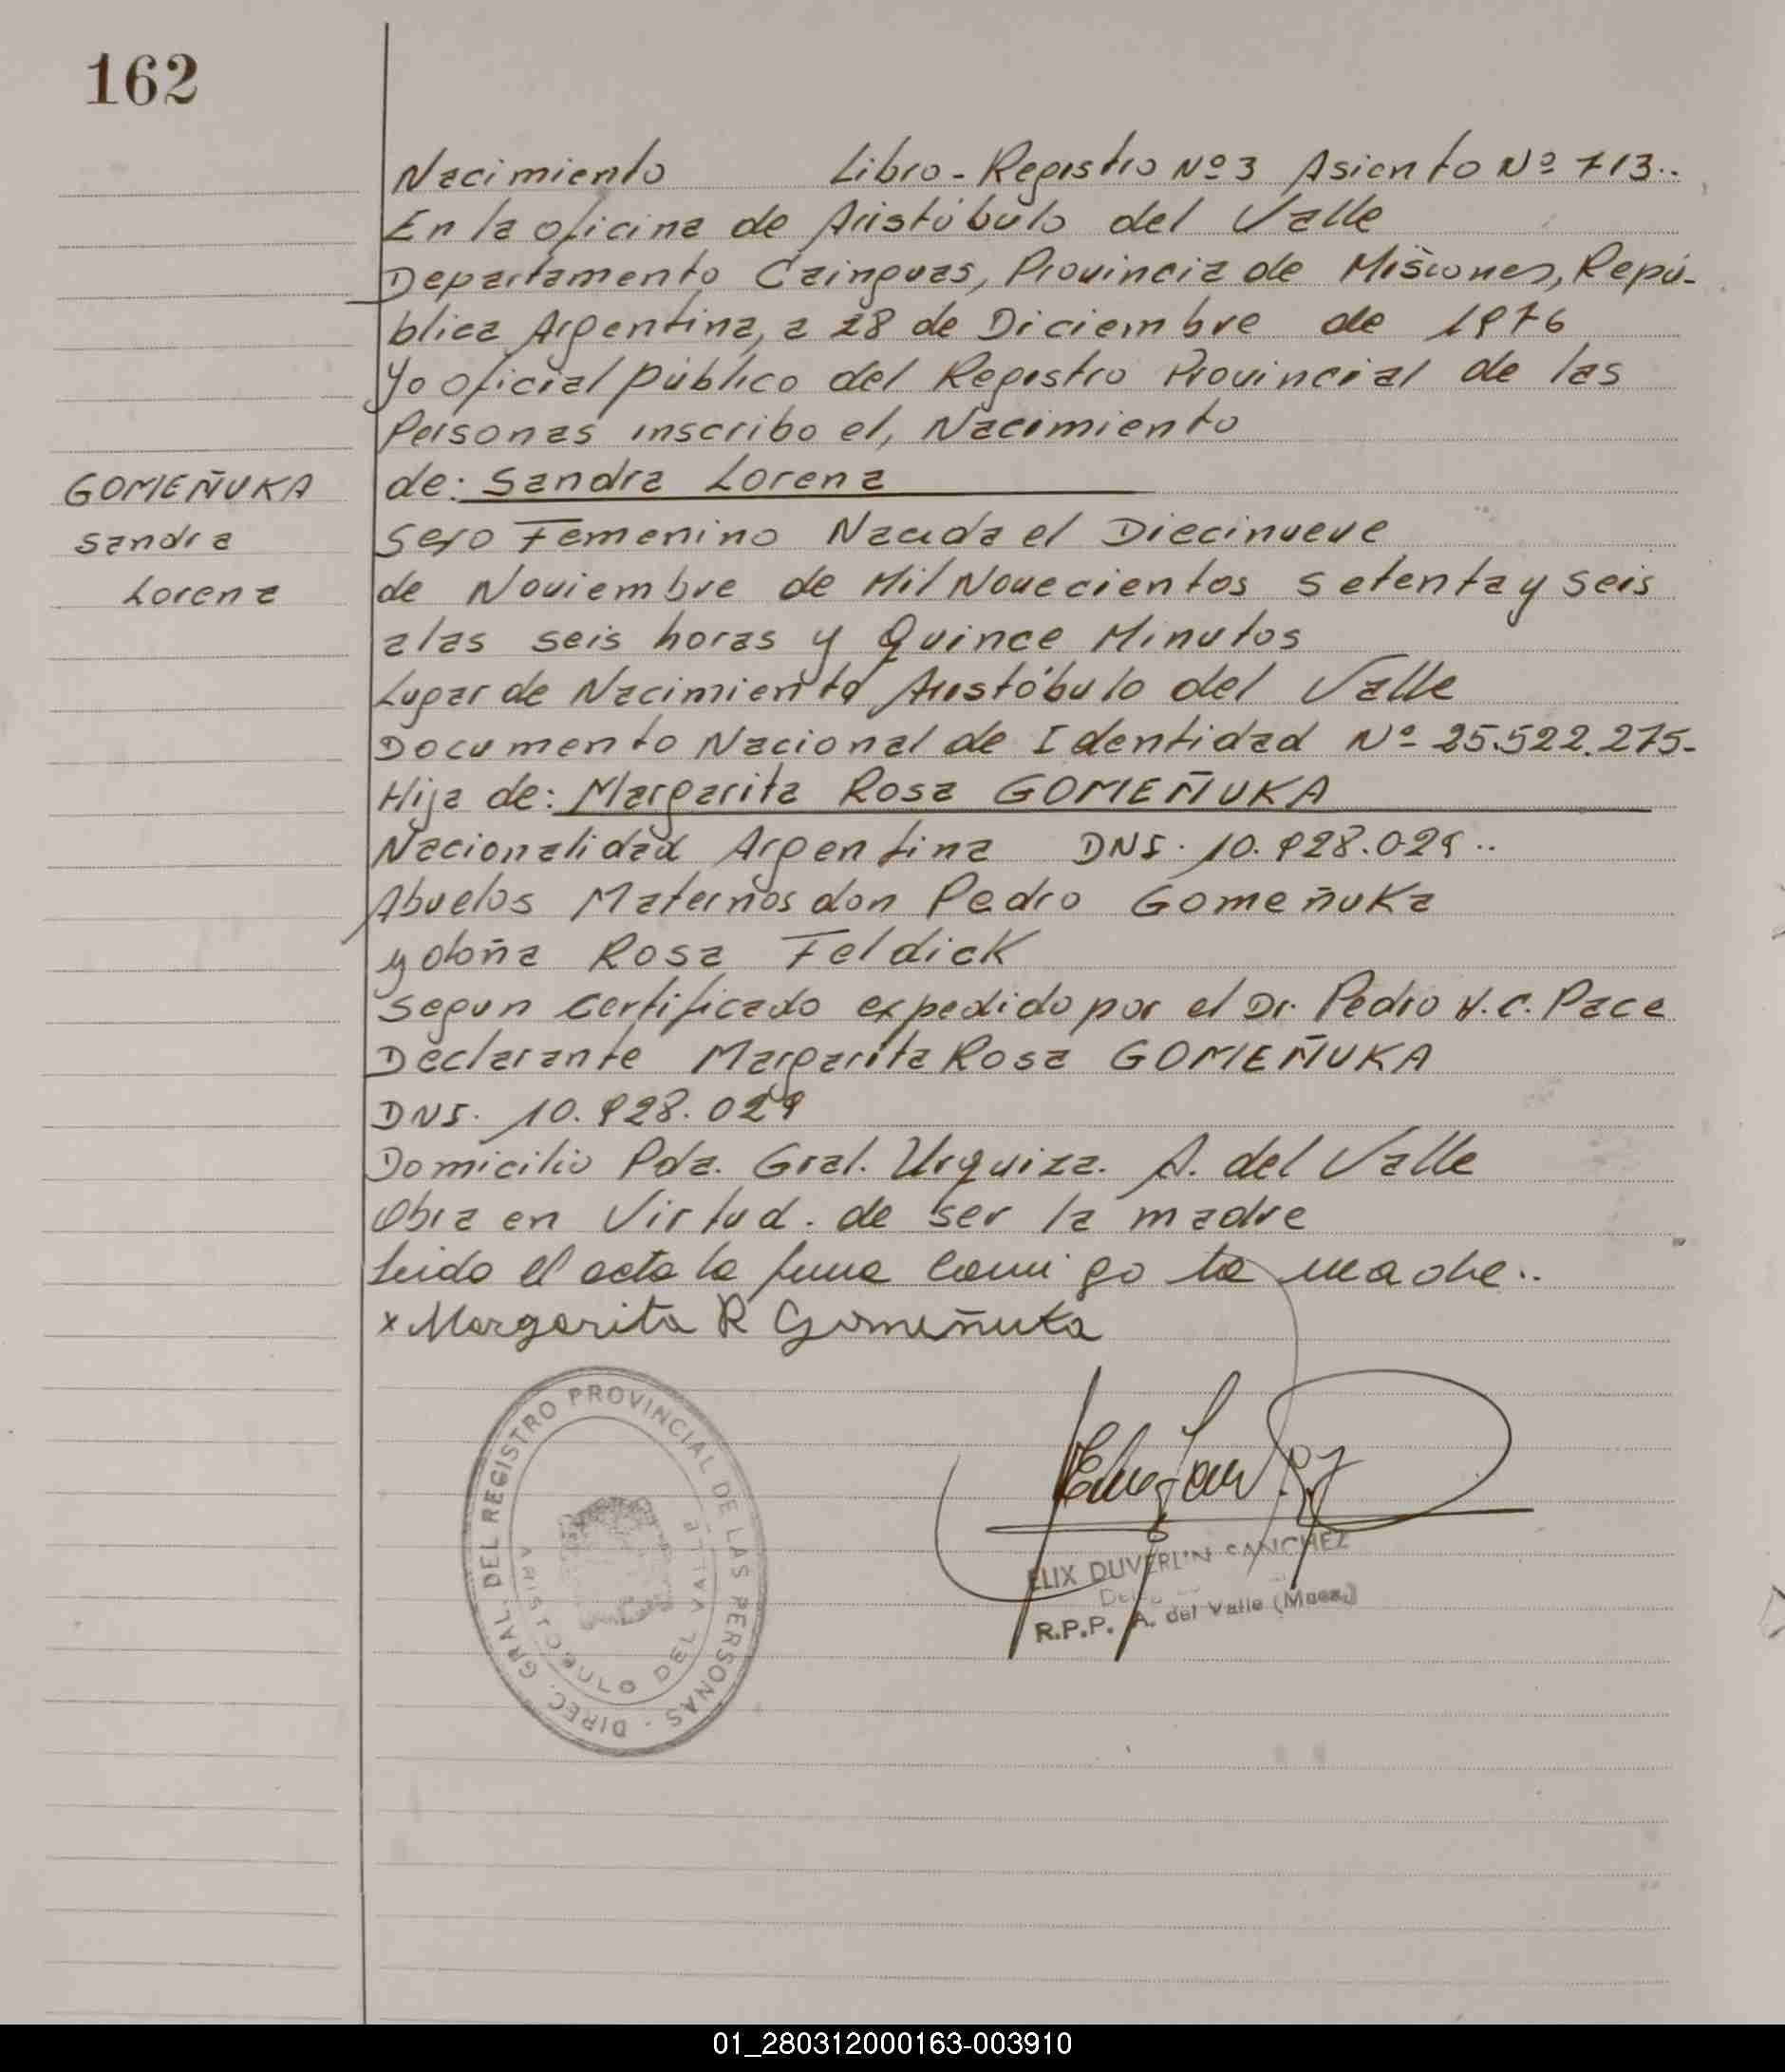 162
Nacimiento Libro-Registro Nº 3 Asiento Nº 713..
En la oficina de Aristóbulo del Valle
Departamento Cainguas, Provincia de Misiones, Repú-
blica Argentina, a 28 de Diciembre de 1976
Yo oficial público del Registro Provincial de las
Personas inscribo el, Nacimiento
GOMEÑUKA
Sandra
Lorena
de: Sandra Lorena
Sexo Femenino Nacida el Diecinueve
de Noviembre de Mil Novecientos Setenta y Seis
a las seis horas y Quince Minutos
Lugar de Nacimiento Aristóbulo del Valle
Documento Nacional de Identidad Nº 25.522.275-
Hija de: Margarita Rosa GOMEÑUKA
Nacionalidad Argentina DNI. 10.928.029..
Abuelos Maternos don Pedro Gomeñuka
y doña Rosa Feldick
Segun certificado expedido por el Dr. Pedro H.C. Pace
Declarante Margarita Rosa GOMEÑUKA
DNI. 10.928.029
Domicilio Pda. Gral. Urquiza. A. del Valle
Obra en Virtud. de ser la madre
Leido el acta la firma conmigo la madre..
x Margarita R Gomeñuka
DIREC. GRAL. DEL REGISTRO PROVINCIAL DE LAS PERSONAS -
ARISTOBULO DEL VALLE
ELIX DUVERLIN SANCHEZ
R.P.P. A. del Valle (Mnes.)
01_280312000163-003910